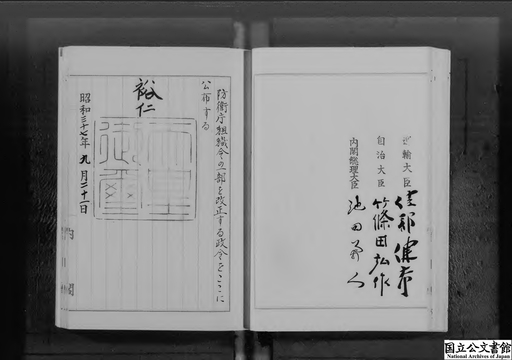 運輸大臣 綾部健太郎
自治大臣 篠田弘作
内閣総理大臣 池田勇人
防衛庁組織令の一部を改正する政令をここに
公布する
裕仁
天皇御璽
昭和三十七年九月二十一日
内閣
国立公文書館
National Archives of Japan